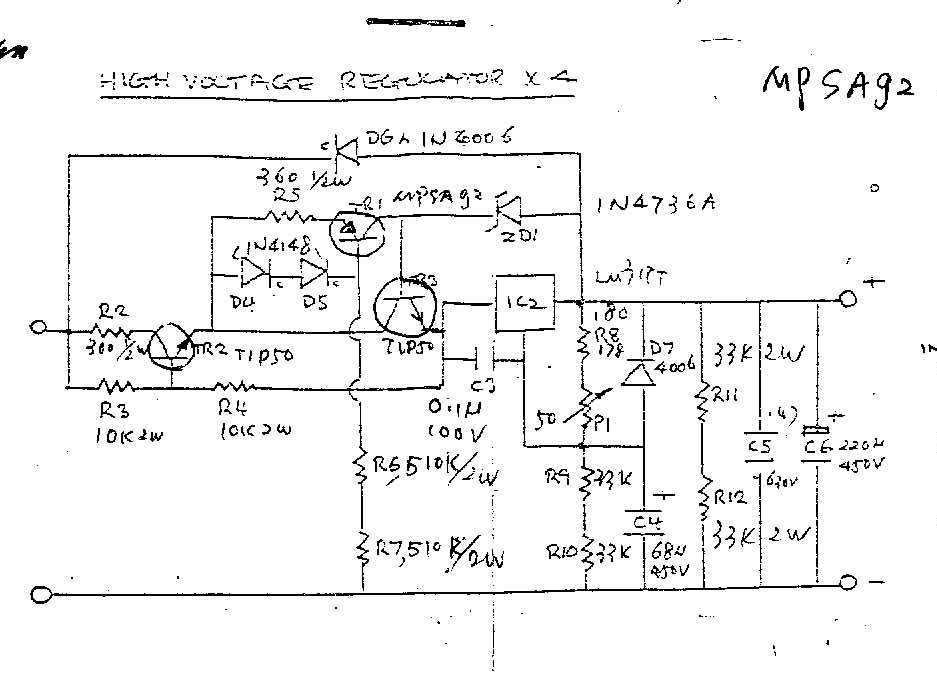 HIGH VOLTAGE REGULATOR X 4
MPSA92
D6 1N4006
360 1/2W
R5
TR1
MPSA92
1N4736A
ZD1
1N4148
D4
D5
c
c
c
TR3
TIP50
LM317T
IC2
R2
300 1/2W
TR2
TIP50
R3
10K2W
R4
10K2W
C3
0.1µ
100V
180
R8
178
50
P1
D7
4006
33K 2W
R11
R12
33K 2W
.47
C5
630V
+
C6
220µ
450V
R6, 510K/2W
R7, 510K/2W
R9
33K
R10
33K
+
C4
68µ
450V
+
-